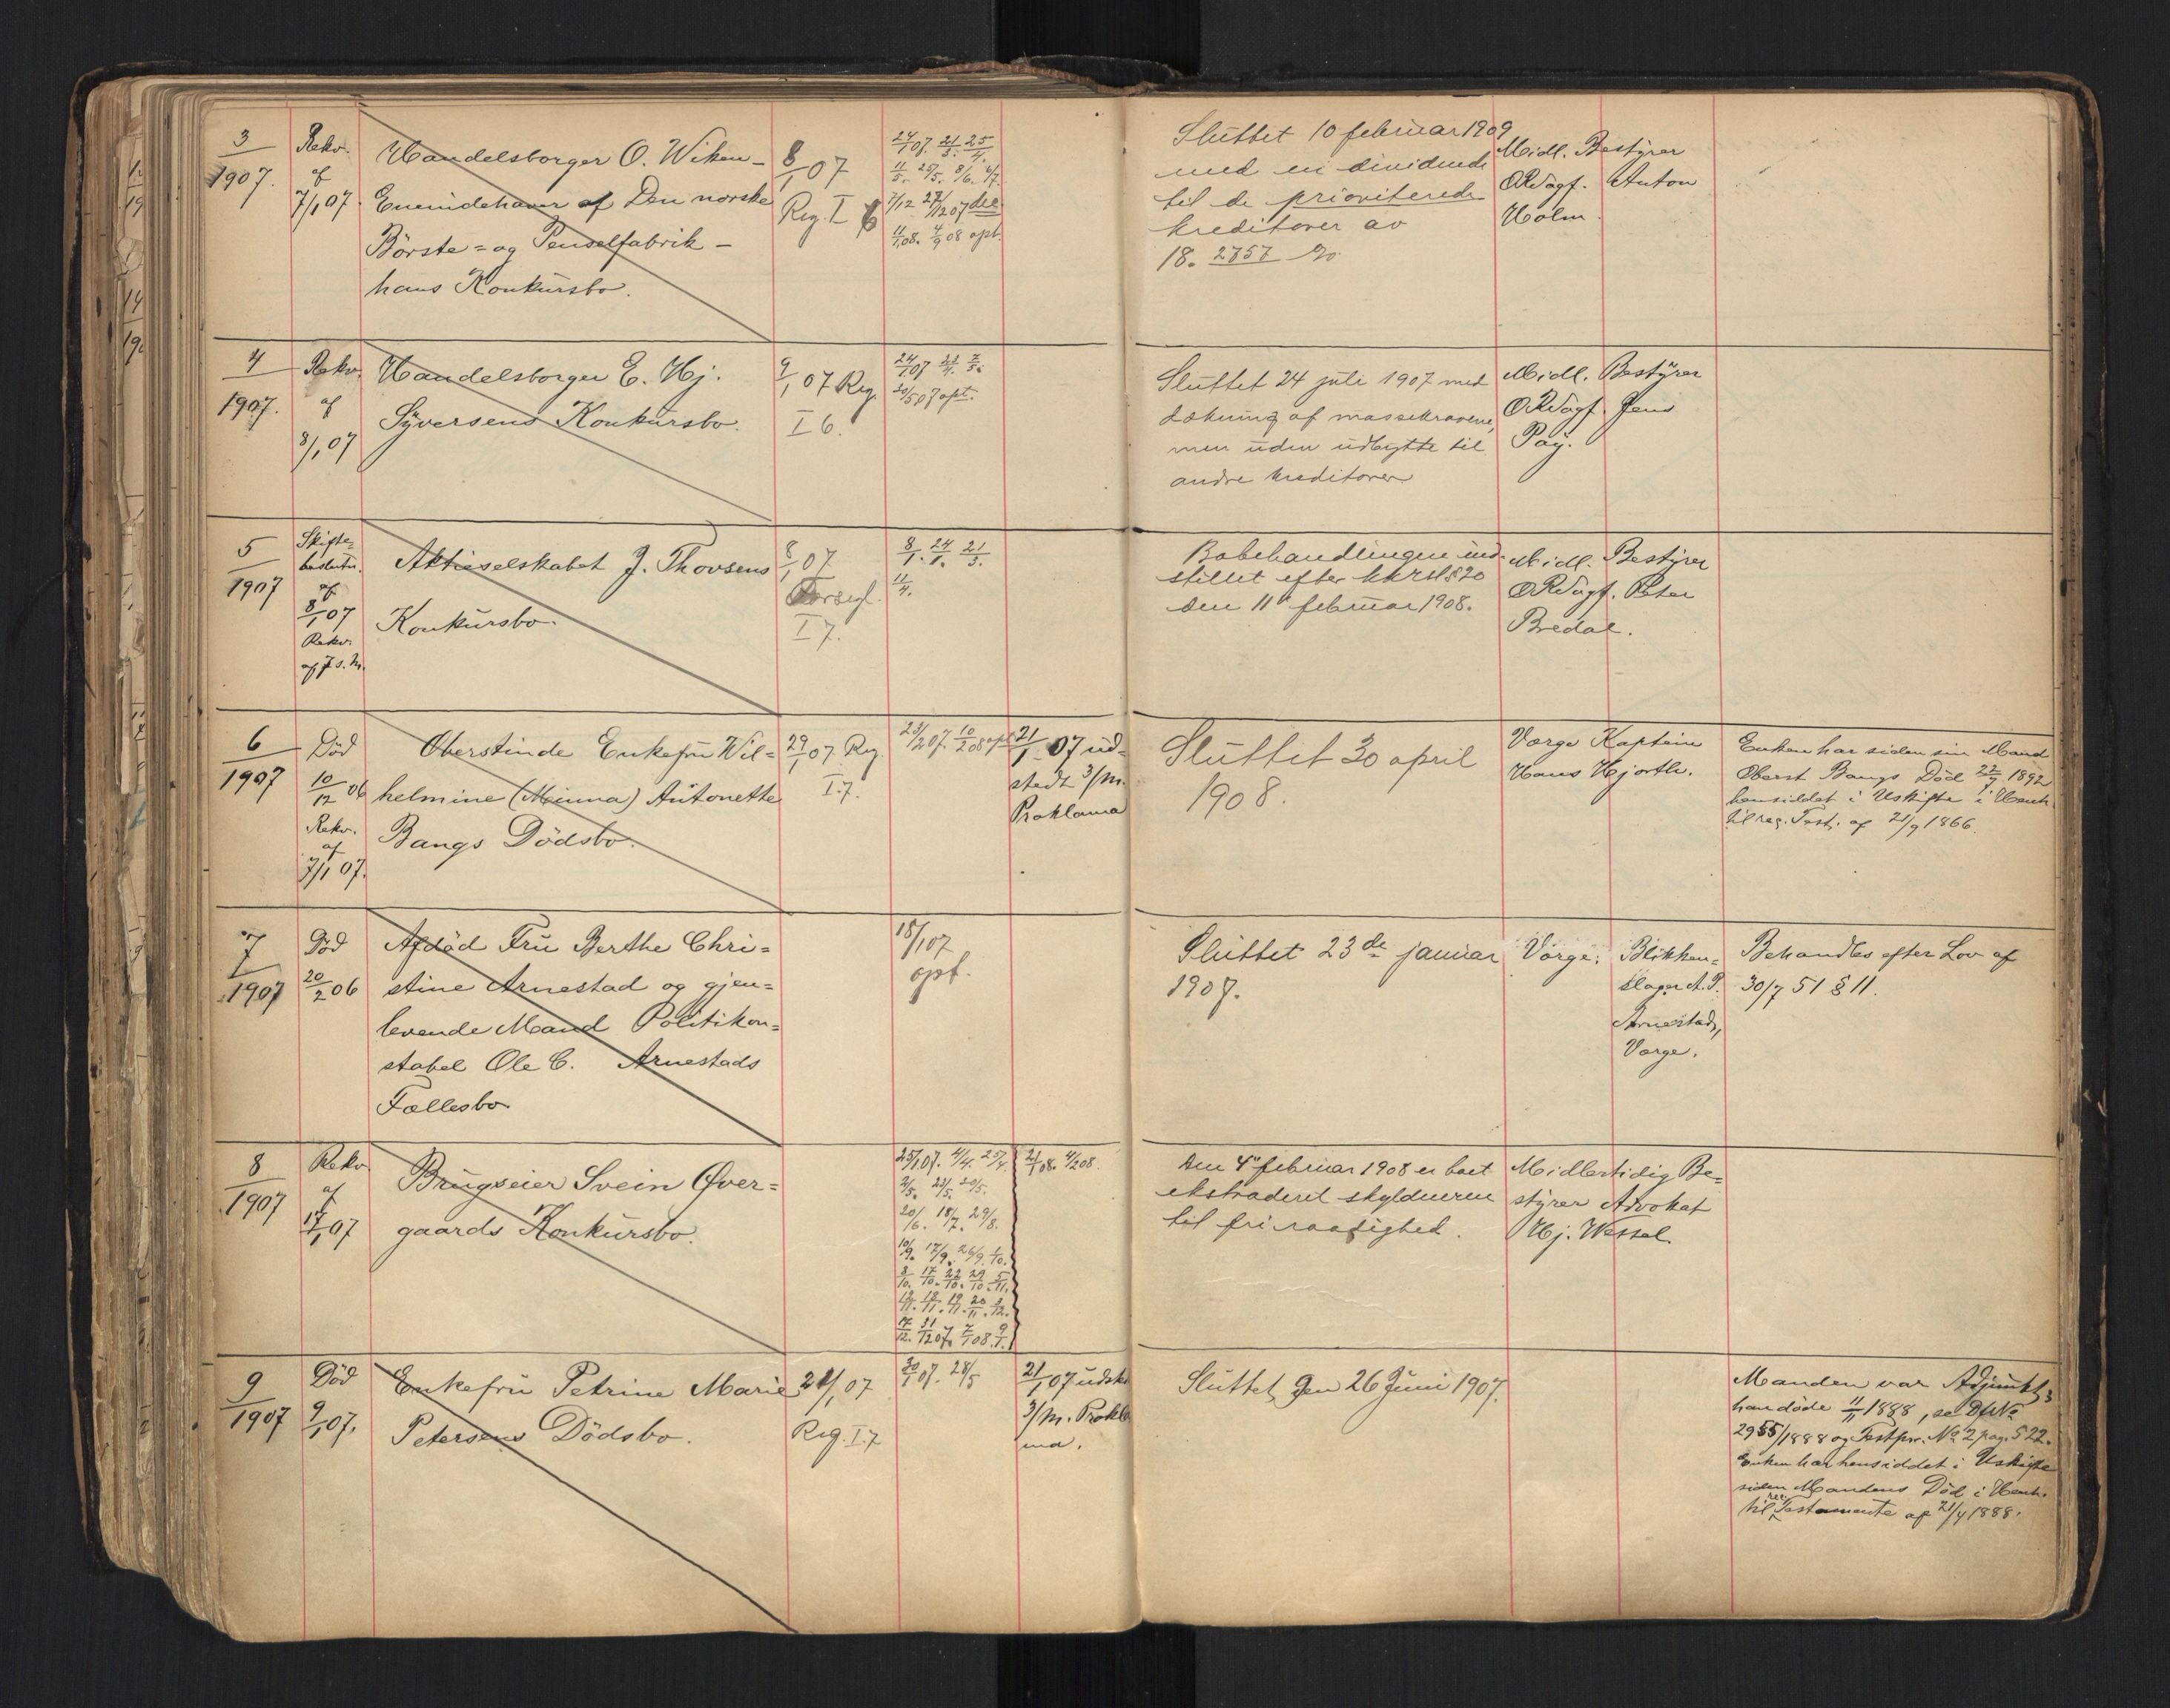 3 Rekv. Handelsborger O. Wiken- 8/1 07 24/1 07. 21/3. 25/4.
1907. af Eneindehaver af Den norske Reg. I 6 11/5. 25/5. 8/6. 4/7.
7/1 07. Börste- og Penselfabrik - 7/12 27/12 07 del
hans Konkursbo. 11/1 08. 4/9 08 opt.
Sluttet 10 februar 1909 Midl. Bestyrer
med en dividende ORsagf. Anton
til de prioriterede Holm.
kreditorer av
18. 2757 %
4 Rekv. Handelsborger E. Hj. 9/1 07 Reg. 24/1 07
1907. af Syversens Konkursbo. I 6. 30/5 07 opt.
8/1 07
Sluttet 24 juli 1907 med Midl. Bestyrer
dækning af massekravene, ORsagf. Jens
men uden udbytte til Pay.
andre kreditorer
5 Skifte- Aktieselskabet J. Thovsens 8/1 07 8/1. 24/1. 21/3.
1907 beslutn. Konkursbo. Forsegl. 11/4.
af I 7.
8/1 07
Rekv.
af
Bobehandlingen ind- Midl. Bestyrer
stillet efter kkrsl § 20 ORsagf. Peter
den 11 februar 1908. Bredal.
6 Död Oberstinde Enkefru Wil- 29/1 07. Reg. 21/1 07 ud-
1907 10/12 06 helmine (Minna) Antonette I 7. stedt 3/m.
Rekv. Bangs Dödsbo. Proklama
af
7/1 07.
Sluttet 30 april Verge Kaptein Enken har siden sin Mand
1908. Hans Hjorth. Oberst Bangs Död 22/7 1892
hensiddet i Uskifte i Henh.
til reg. Test. af 21/9 1866.
7 Död Afdöd Fru Berthe Chri- 18/1 07
1907 20/2 06 stine Arnestad og gjen- opt.
levende Mand Politikon-
stabel Ole C. Arnestads
Fællesbo
Sluttet 23de januar Verge: Blikken- Behandles efter Lov af
1907. slager A. P. 30/7 51 § 11.
Arnestad,
Verge.
8 Rekv. Brugseier Svein Över- 25/1 07. 4/4. 25/4. 21/1 08. 4/2 08.
1907 af gaards Konkursbo. 2/5. 23/5. 29/5.
17/1 07 20/6. 18/7. 29/8.
10/9. 17/9. 26/9. 1/10.
3/10. 17/10. 22/10. 29/10. 5/11.
12/11. 18/11. 19/11. 20/11. 3/12.
17/12. 31/12 07. 7/1 08. 9/1.
Den 4 februar 1908 er boet Midlertidig Be-
ekstraderet skyldneren styrer Advokat
til fri raadighed. Hj. Wessel.
9 Död Enkefru Petrine Marie 21/1 07 30/1 07. 28/5 21/1 07 udst.
1907 9/1 07. Petersens Dödsbo. Reg. I 7 3/m. Prokla
ma.
Sluttet den 26 Juni 1907. Manden var Adjunkt,
han döde 11/11 1888, se Df №
2955/1888 og Testpr. № 2 pag. 522.
Enken har hensiddet i Uskifte
siden Mandens Död i Henh.
til reg. Testamente af 21/4 1888.